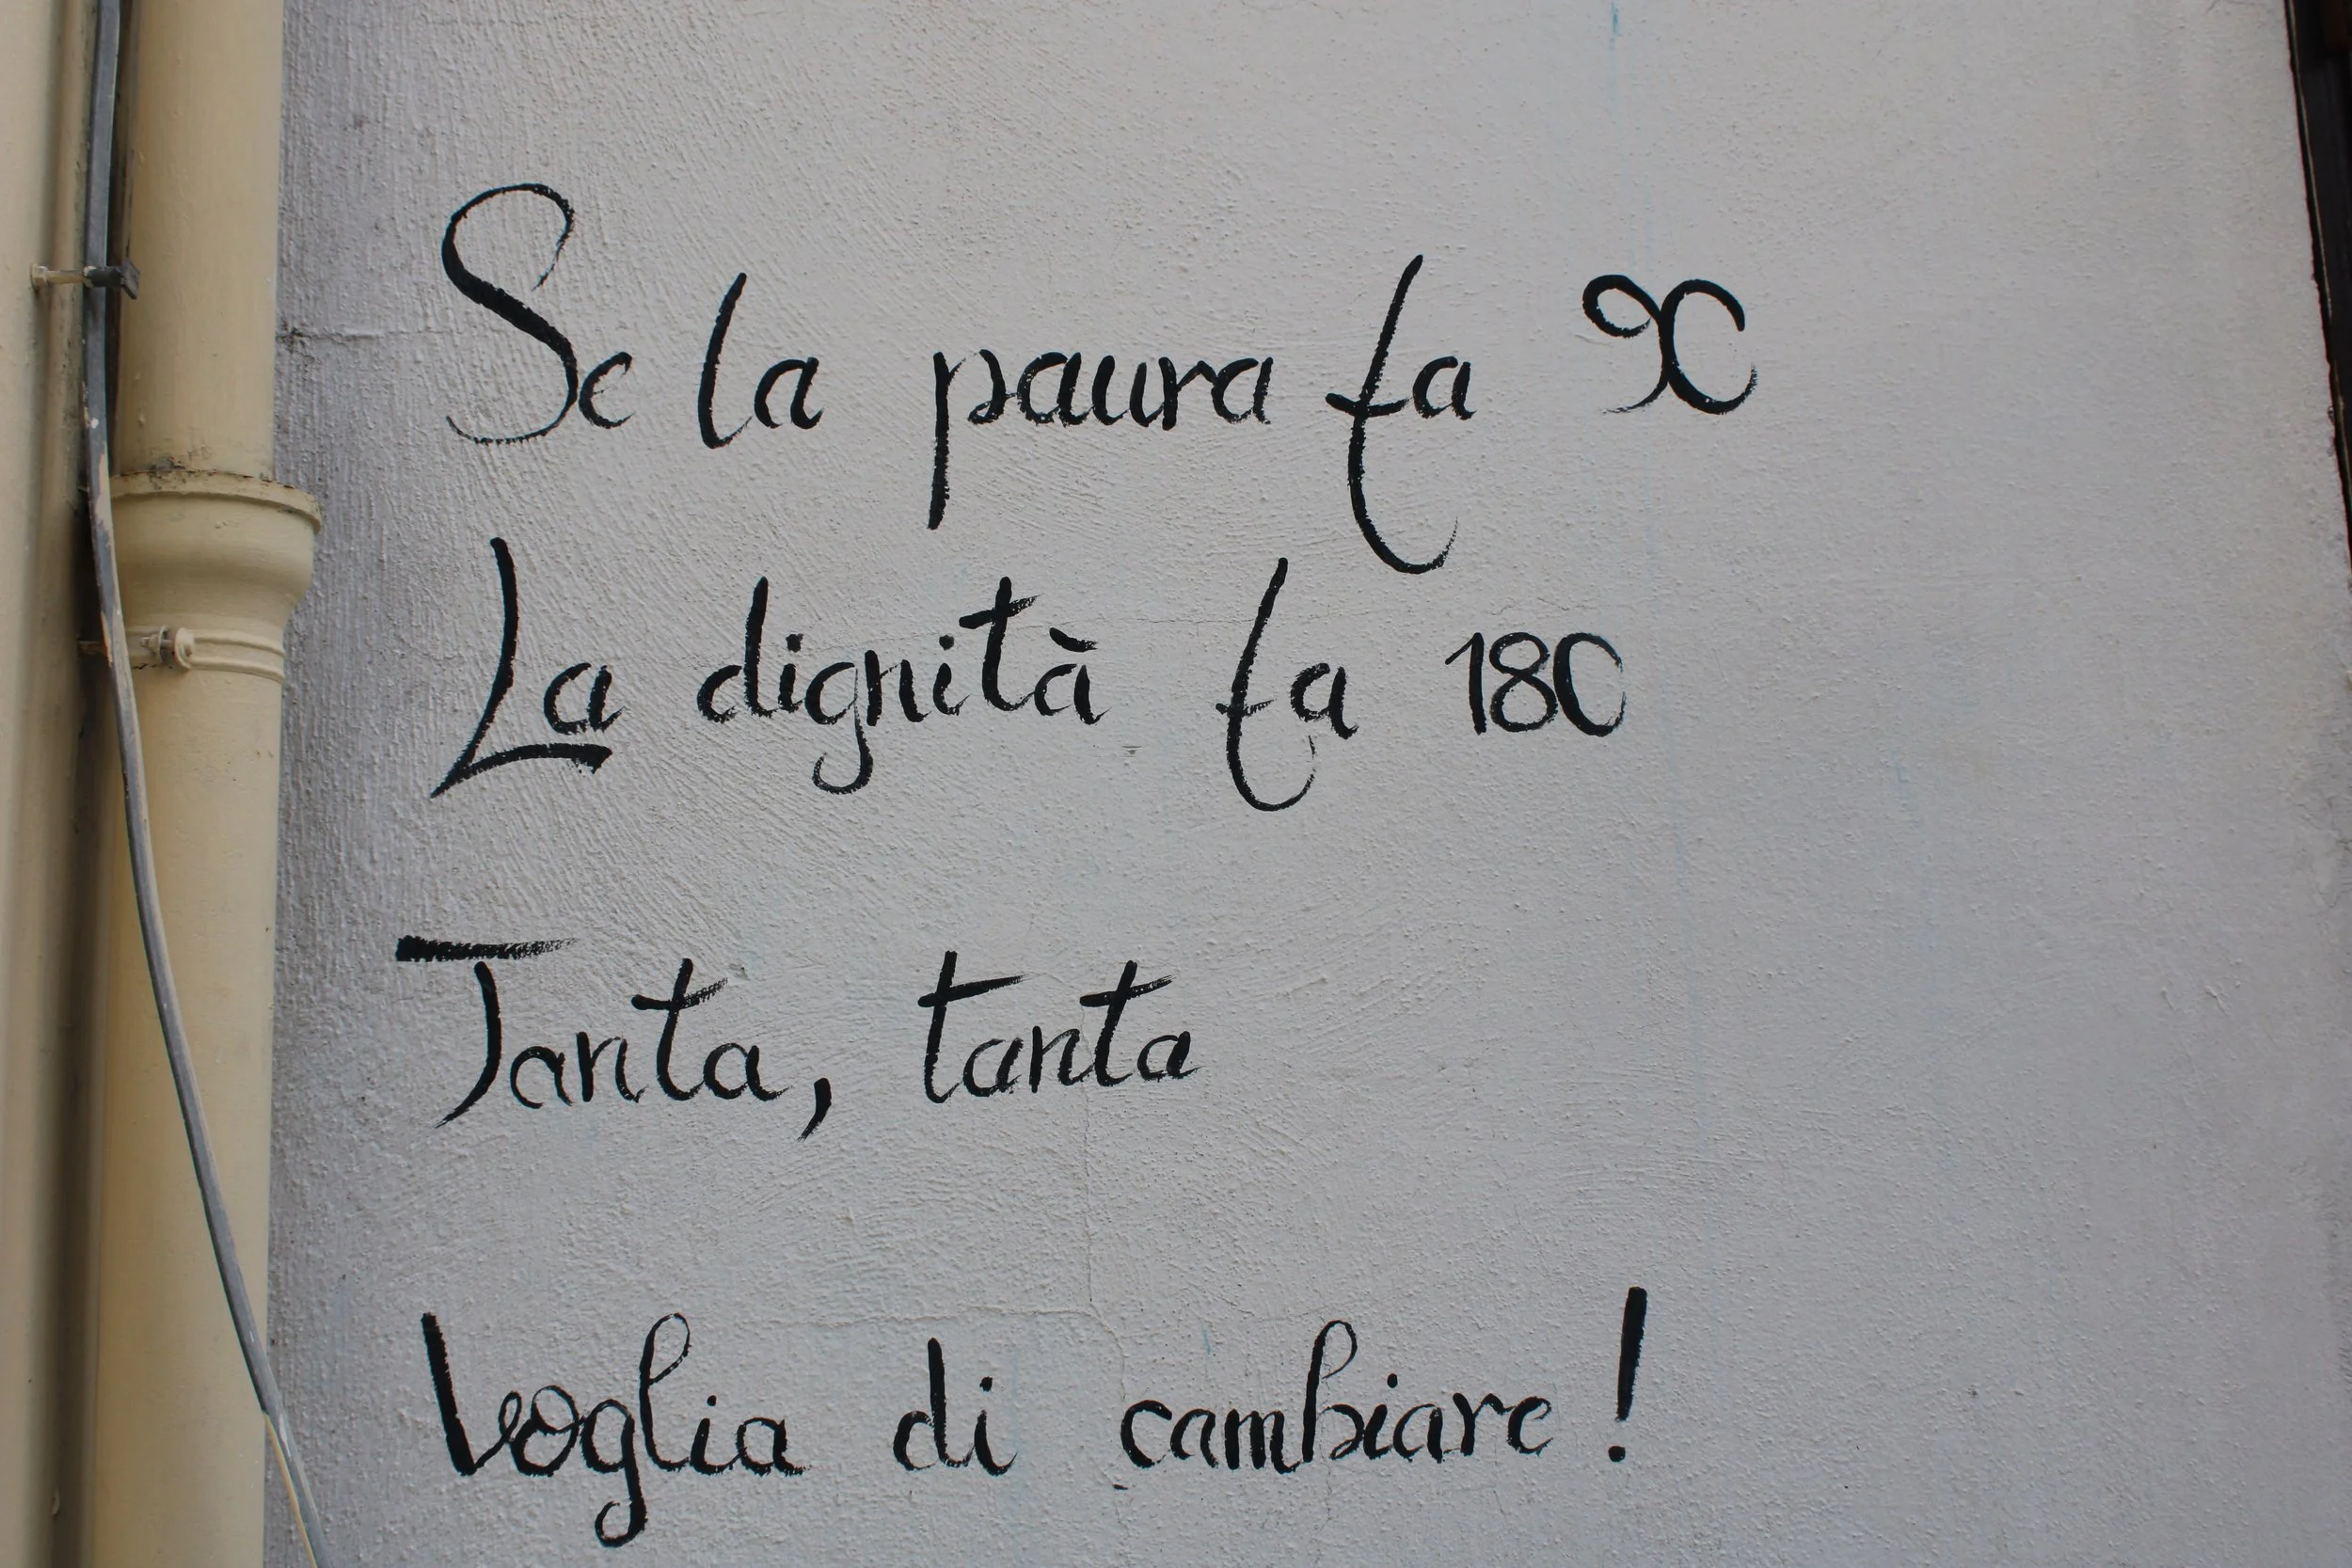 Se la paura fa 90
La dignità fa 180
Tanta, tanta
Voglia di cambiare!